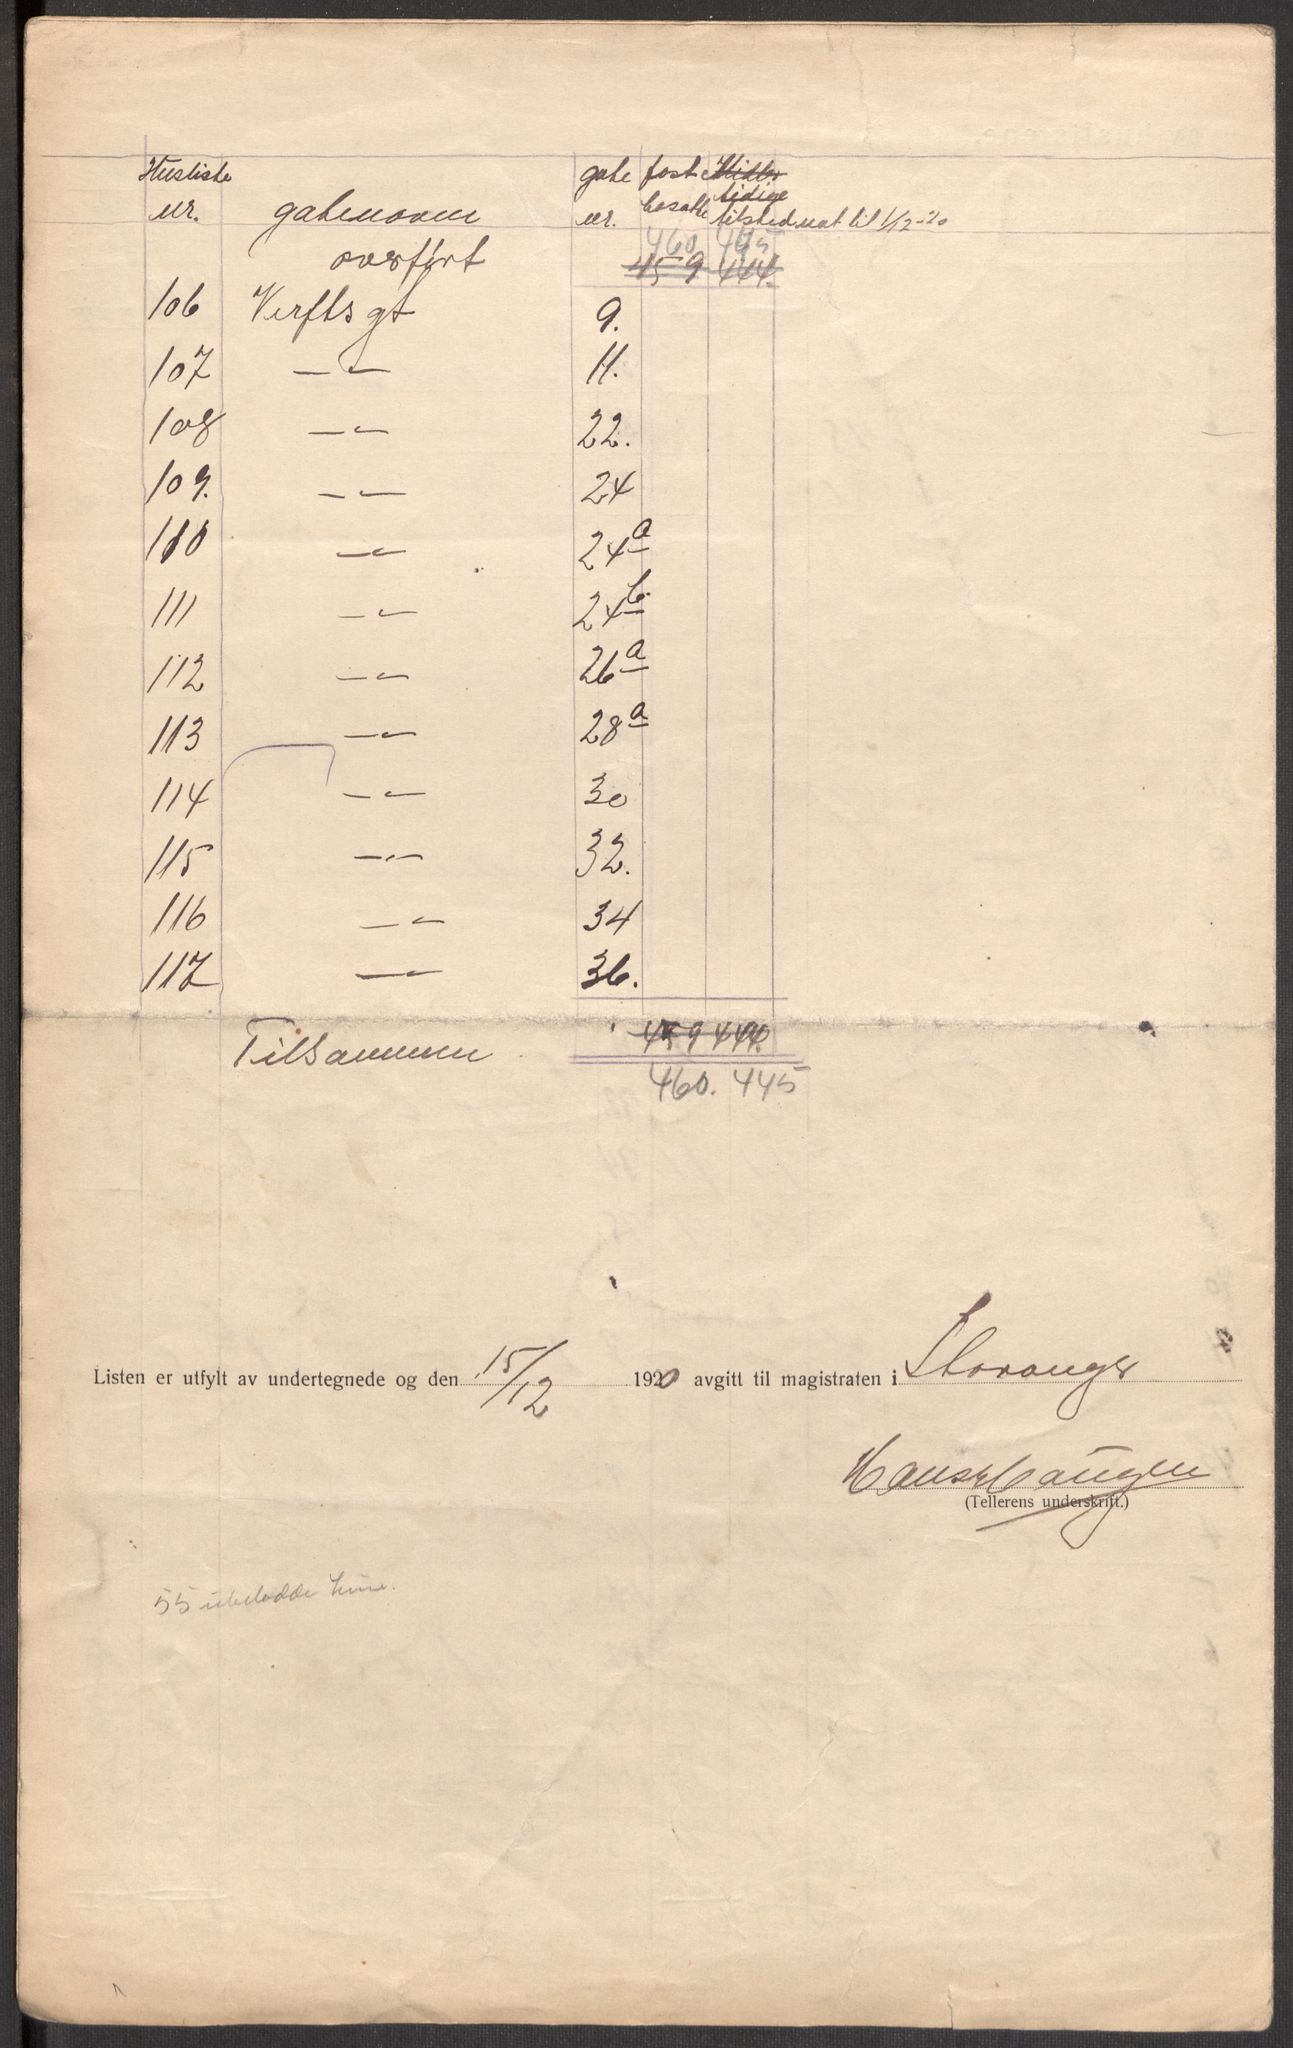 Husliste gate fast Midler
nr. gatenavn nr. bosatte tidige tilsted nat til 1/12-20
460 445
overført 459 444.
106 Verftsgt 9.
107 — " — 11.
108 — " — 22.
109. — " — 24
110 — " — 24 a
111 — " — 24 b.
112 — " — 26 a
113 — " — 28 a
114 — " — 30
115 — " — 32.
116 — " — 34
117 — " — 36.
Tilsammen 459 444.
460. 445
Listen er utfylt av undertegnede og den 15/12 1920 avgitt til magistraten i Stavanger
Hans Haugen
(Tellerens underskrift.)
55 ubebodde huse.